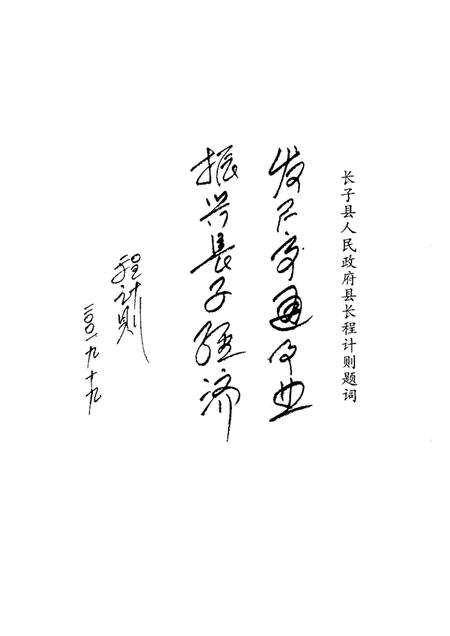 长子县人民政府县长程计则题词
发展交通事业
振兴长子经济
程计则
二00一九十九